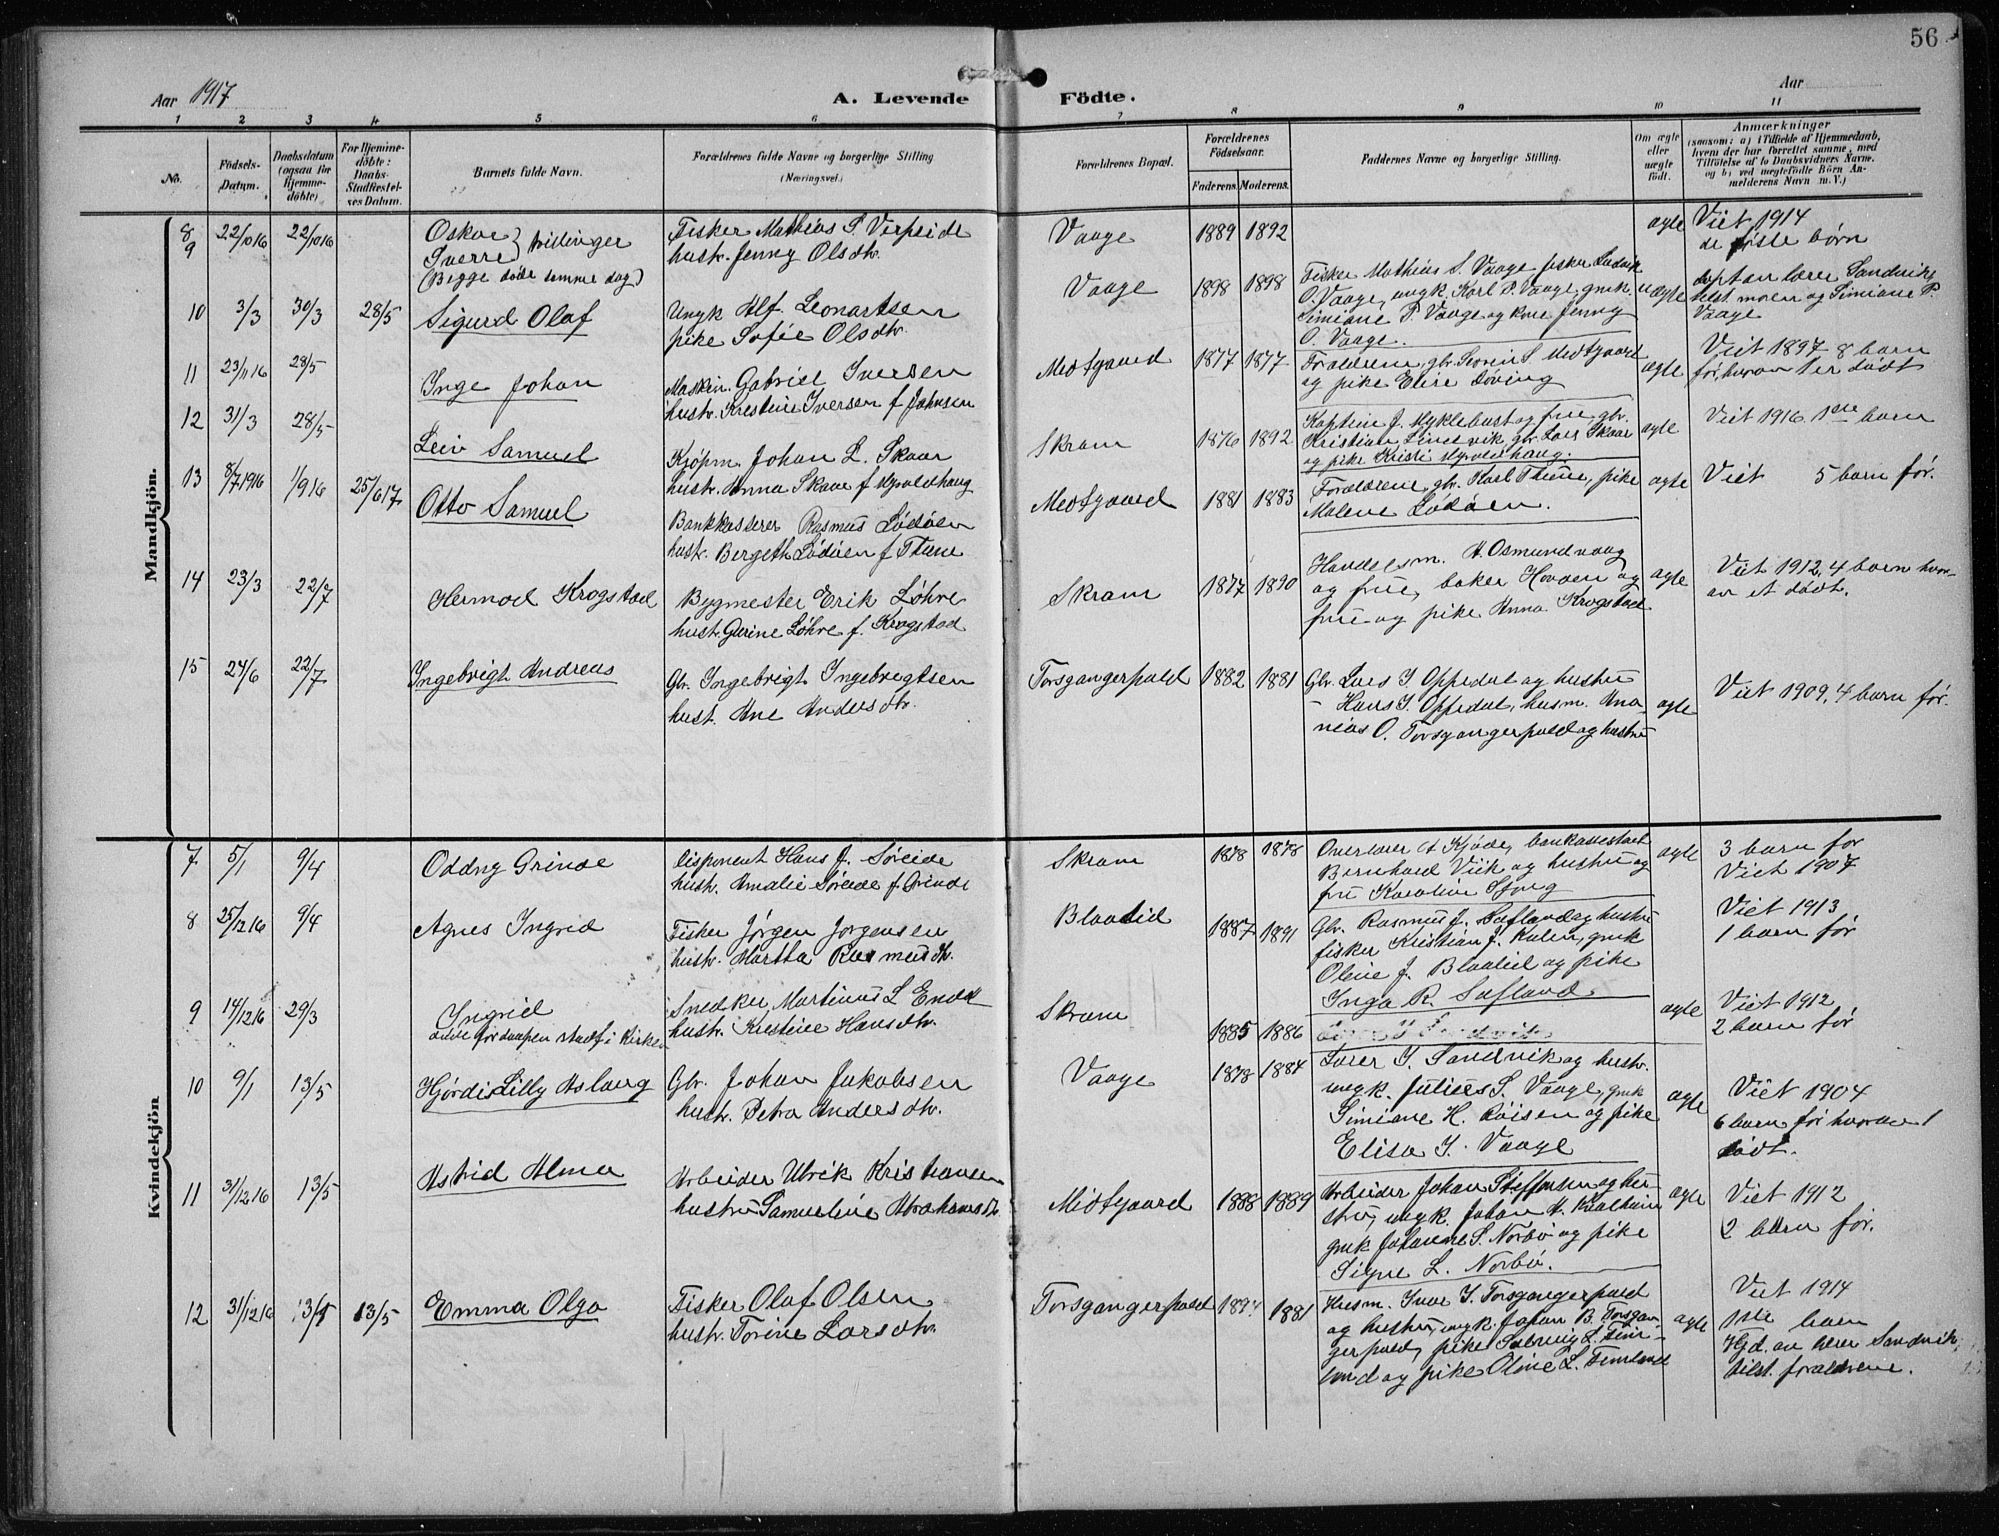 56
Aar 1917
A. Levende Födte.
Aar
1 2 3 4 5 6 7 8 9 10 11
No.
Födsels-Datum.
Daabsdatum (ogsaa för Hjemme-döbte)
For Hjemme-döbte: Daabs-Stadfæstel-ses Datum.
Barnets fulde Navn.
Forældrenes fulde Navne og borgerlige Stilling (Næringsvei.)
Forældrenes Bopæl.
Forældrenes Födselsaar.
Faderens. Moderens.
Faddernes Navne og borgerlige Stilling.
Om ægte eller uægte födt.
Anmærkninger
(saasom: a) i Tilfælde af Hjemmedaab, hvem der har forrettet samme, med Tilföielse af to Daabsvidners Navne. og b) ved uægtefödte Börn An-melderens Navn m. V.)
Mandkjön.
8 9 22/10 16 22/10 16
Oskar
Sverre } tvillinger
(Begge døde samme dag)
Fisker Mathias S. Verpeide
hustr. Jenny Olsdtr.
Vaage 1889 1892
ægte
Viet 1914
de første børn
10 3/3 30/3 28/5
Sigurd Olaf
Ungk Alf. Leonartsen
pike Sofie Olsdtr.
Vaage 1898 1898
Fisker Mathias S. Vaage, fisker Ludvik
O. Vaage, ungk. Karl P. Vaage, gmk.
Simiane P. Vaage og kone Jenny
O. Vaage.
uægte
døpt av lærer Sandvik,
tilst. moren og Simiane P.
Vaage
11 23/11 16 28/5
Inge Johan
Maskin. Gabriel Iversen
hustr. Kristine Iversen f Johnsen
Midtgaard 1877 1877
og pike Elire Søving
ægte
Viet 1897 8 barn
før, hvorav 1 er dødt
12 31/3 28/5
Leiv Samuel
Kjøpm. Johan L. Skaar
hustr. Anna Skaar f Myklebhaug
Skram 1876 1892
Kaptein J. Myklebust og frue gbr.
Kristian Lines vik, gbr. Lars Skaar
og pike Kristi
ægte
Viet 1916 1ste barn
13 8/7 1916 1/9 16 25/6 17
Otto Samuel
Bankkasserer Rasmus Lødøen
hustr. Bergeth Lødøen f Thune
Midtgaard 1881 1883
Forældrene, gbr. Karl Thune, pike
Malene Lødøen.
ægte
Viet 5 barn før.
14 23/3 22/7
Hermod Krogstad
Bygmester Erik Løhre
hustr. Gurine Løhre f. Krogstad
Skram 1877 1890
Handelsm. A. Osmundvaag
og frue, baker Hovden og
frue og pike Anna Krogstad.
ægte
Viet 1912, 4 barn hvor-
av et dødt.
15 24/6 22/7
Ingebrigt Andreas
Gbr. Ingebrigt Ingebrigtsen
hust. Ane Andersdtr.
Torsgangerpold 1882 1881
Gbr. Lars I. Oppedal og hustru
Hans I. Oppedal, husm. Ana-
nias O. Torsgangerpold og hustru
ægte
Viet 1909, 4 barn før.
Kvindekjön
7 5/1 9/4
Oddny Grinde
Disponent Hans J. Søreide
hustr. Amalie Søreide f. Grinde
Skram 1878 1878
Overlærer A Kjøde,
Bernhard Viik og hustru og
fru Karoline
ægte
3 barn før
Viet 1907
8 25/12 16 9/4
Agnes Ingrid
Fisker Jørgen Jorgensen
hustr. Martha Rasmusdtr.
Blaalid 1887 1891
Gbr. Rasmus J. Sæfland og hustru
fisker Kristian J. Kulen, gmk
Oline J. Blaalid og pike
Inga R. Sæfland
Viet 1913
1 barn før
9 14/12 16 29/3
Ingrid
døde før daapen stadf. i kirken
Snedker Martinus L Endal
hustr. Kristine Hansdtr.
Skram 1885 1886
ægte
Viet 1912
2 barn før
10 9/1 13/5
Hjørdis Lilly Aslaug
Gbr. Johan Jakobsen
hustr. Petra Andersdtr.
Vaage 1878 1884
Lærer I. Sandvik og hustr.
ungk. Julius S. Vaage, gmk
Simiane H. Røisen og pike
Elisa I. Vaage
ægte
Viet 1904
6 barn før hvorav 1
dødt.
11 31/12 16 13/5
Astrid Alma
Arbeider Ulrik Kristiansen
hustru Samueline Abrahamsdtr.
Midtgaard 1888 1889
Arbeider Johan Steffensen og hu-
stru, ungk. Johan A. Kvalheim
gmk Johanne S. Norbø og pike
Signe L. Norbø.
ægte
Viet 1912
2 barn før.
12 31/12 16 13/1 13/5
Emma Olga
Fisker Olaf Olsen
hustr. Torine Larsdtr.
Torsgangerpold 1894 1881
Husm. Ivar I. Torsgangerpold
og hustru, ungk. Johan B. Torsgan-
gerpold, pike Salmine L. Fim-
land og pike Oline L. Fimland
ægte
Viet 1914
1ste barn
Hjd. av lærer Sandvik,
tilst. forældrene.